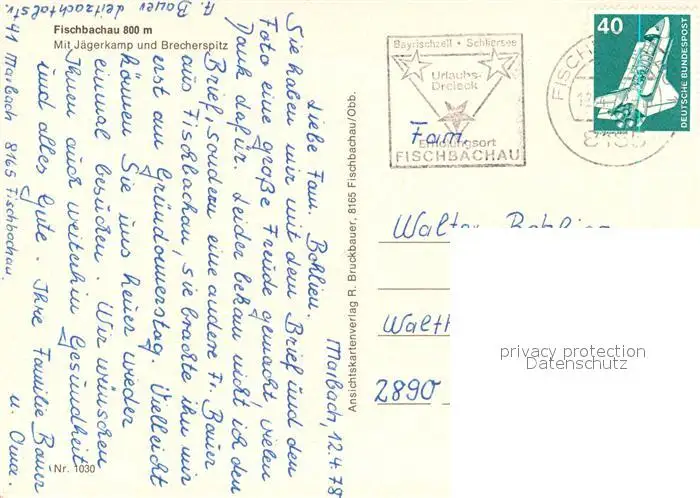 Fischbachau 800 m
Mit Jägerkamp und Brecherspitz
Nr. 1030
Ansichtskartenverlag R. Bruckbauer, 8165 Fischbachau/Obb.
Bayrischzell • Schliersee
Urlaubs-
Dreieck
Erholungsort
FISCHBACHAU
40
DEUTSCHE BUNDESPOST
Maibach, 12.4.78
Liebe Fam. Bohlien.
Sie haben mir mit dem Brief und den
Foto eine große Freude gemacht, vielen
Dank dafür. Leider bekam nicht ich den
Brief, sondern eine andere Fr. Bauer
aus Fischbachau, sie brachte ihn mir
erst am Gründonnerstag. Vielleicht
können Sie uns heuer wieder
einmal besuchen. Wir wünschen
Ihnen auch weiterhin Gesundheit
und alles Gute. Ihre Familie Bauer
u. Oma.
A. Bauer Leitzachtalstr.
41 Maibach 8165 Fischbachau.
Fam.
Walter
Walth
2890
privacy protection
Datenschutz